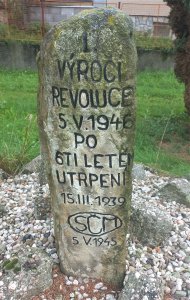 I
VÝROČÍ
REVOLUCE
5.V.1946
PO
6TI LETÉM
UTRPENÍ
15.III.1939
SČM
5.V.1945